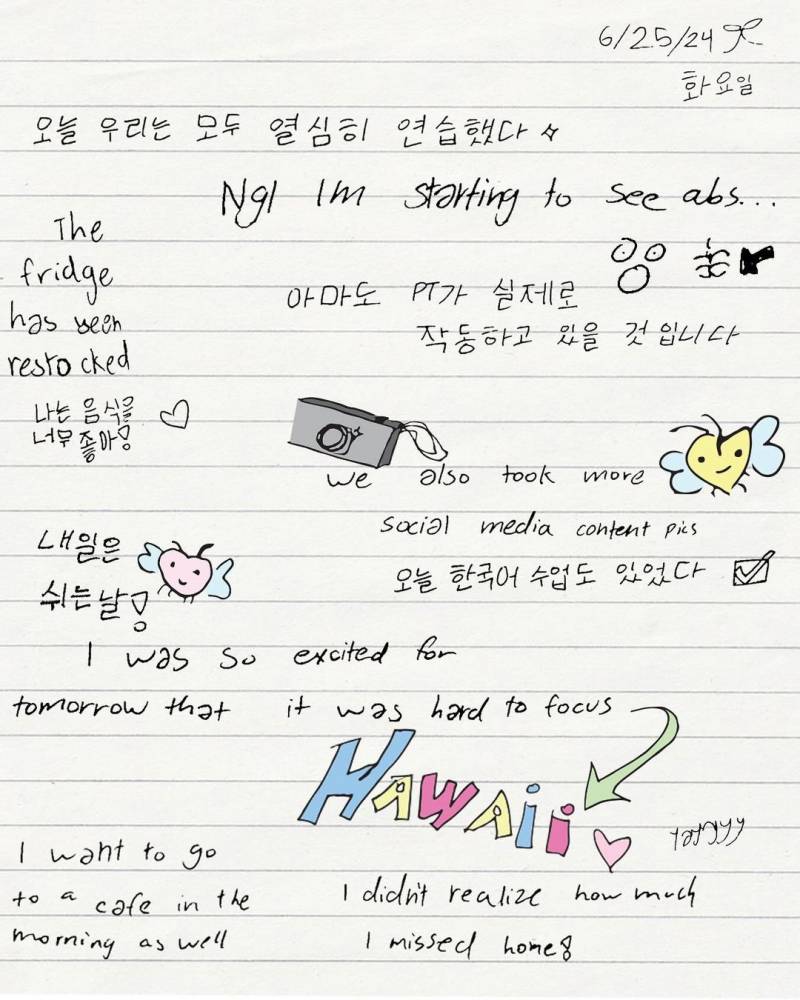 6/25/24
화요일
오늘 우리는 모두 열심히 연습했다
Ngl Im starting to see abs...
The
fridge
has been
restocked
아마도 PT가 실제로
작동하고 있을 것입니다
나는 음식을
너무 좋아!
we also took more
social media content pics
오늘 한국어 수업도 있었다
내일은
쉬는날!
I was so excited for
tomorrow that it was hard to focus
HAWAii
yayyy
I want to go
to a cafe in the
morning as well
I didn't realize how much
I missed home!